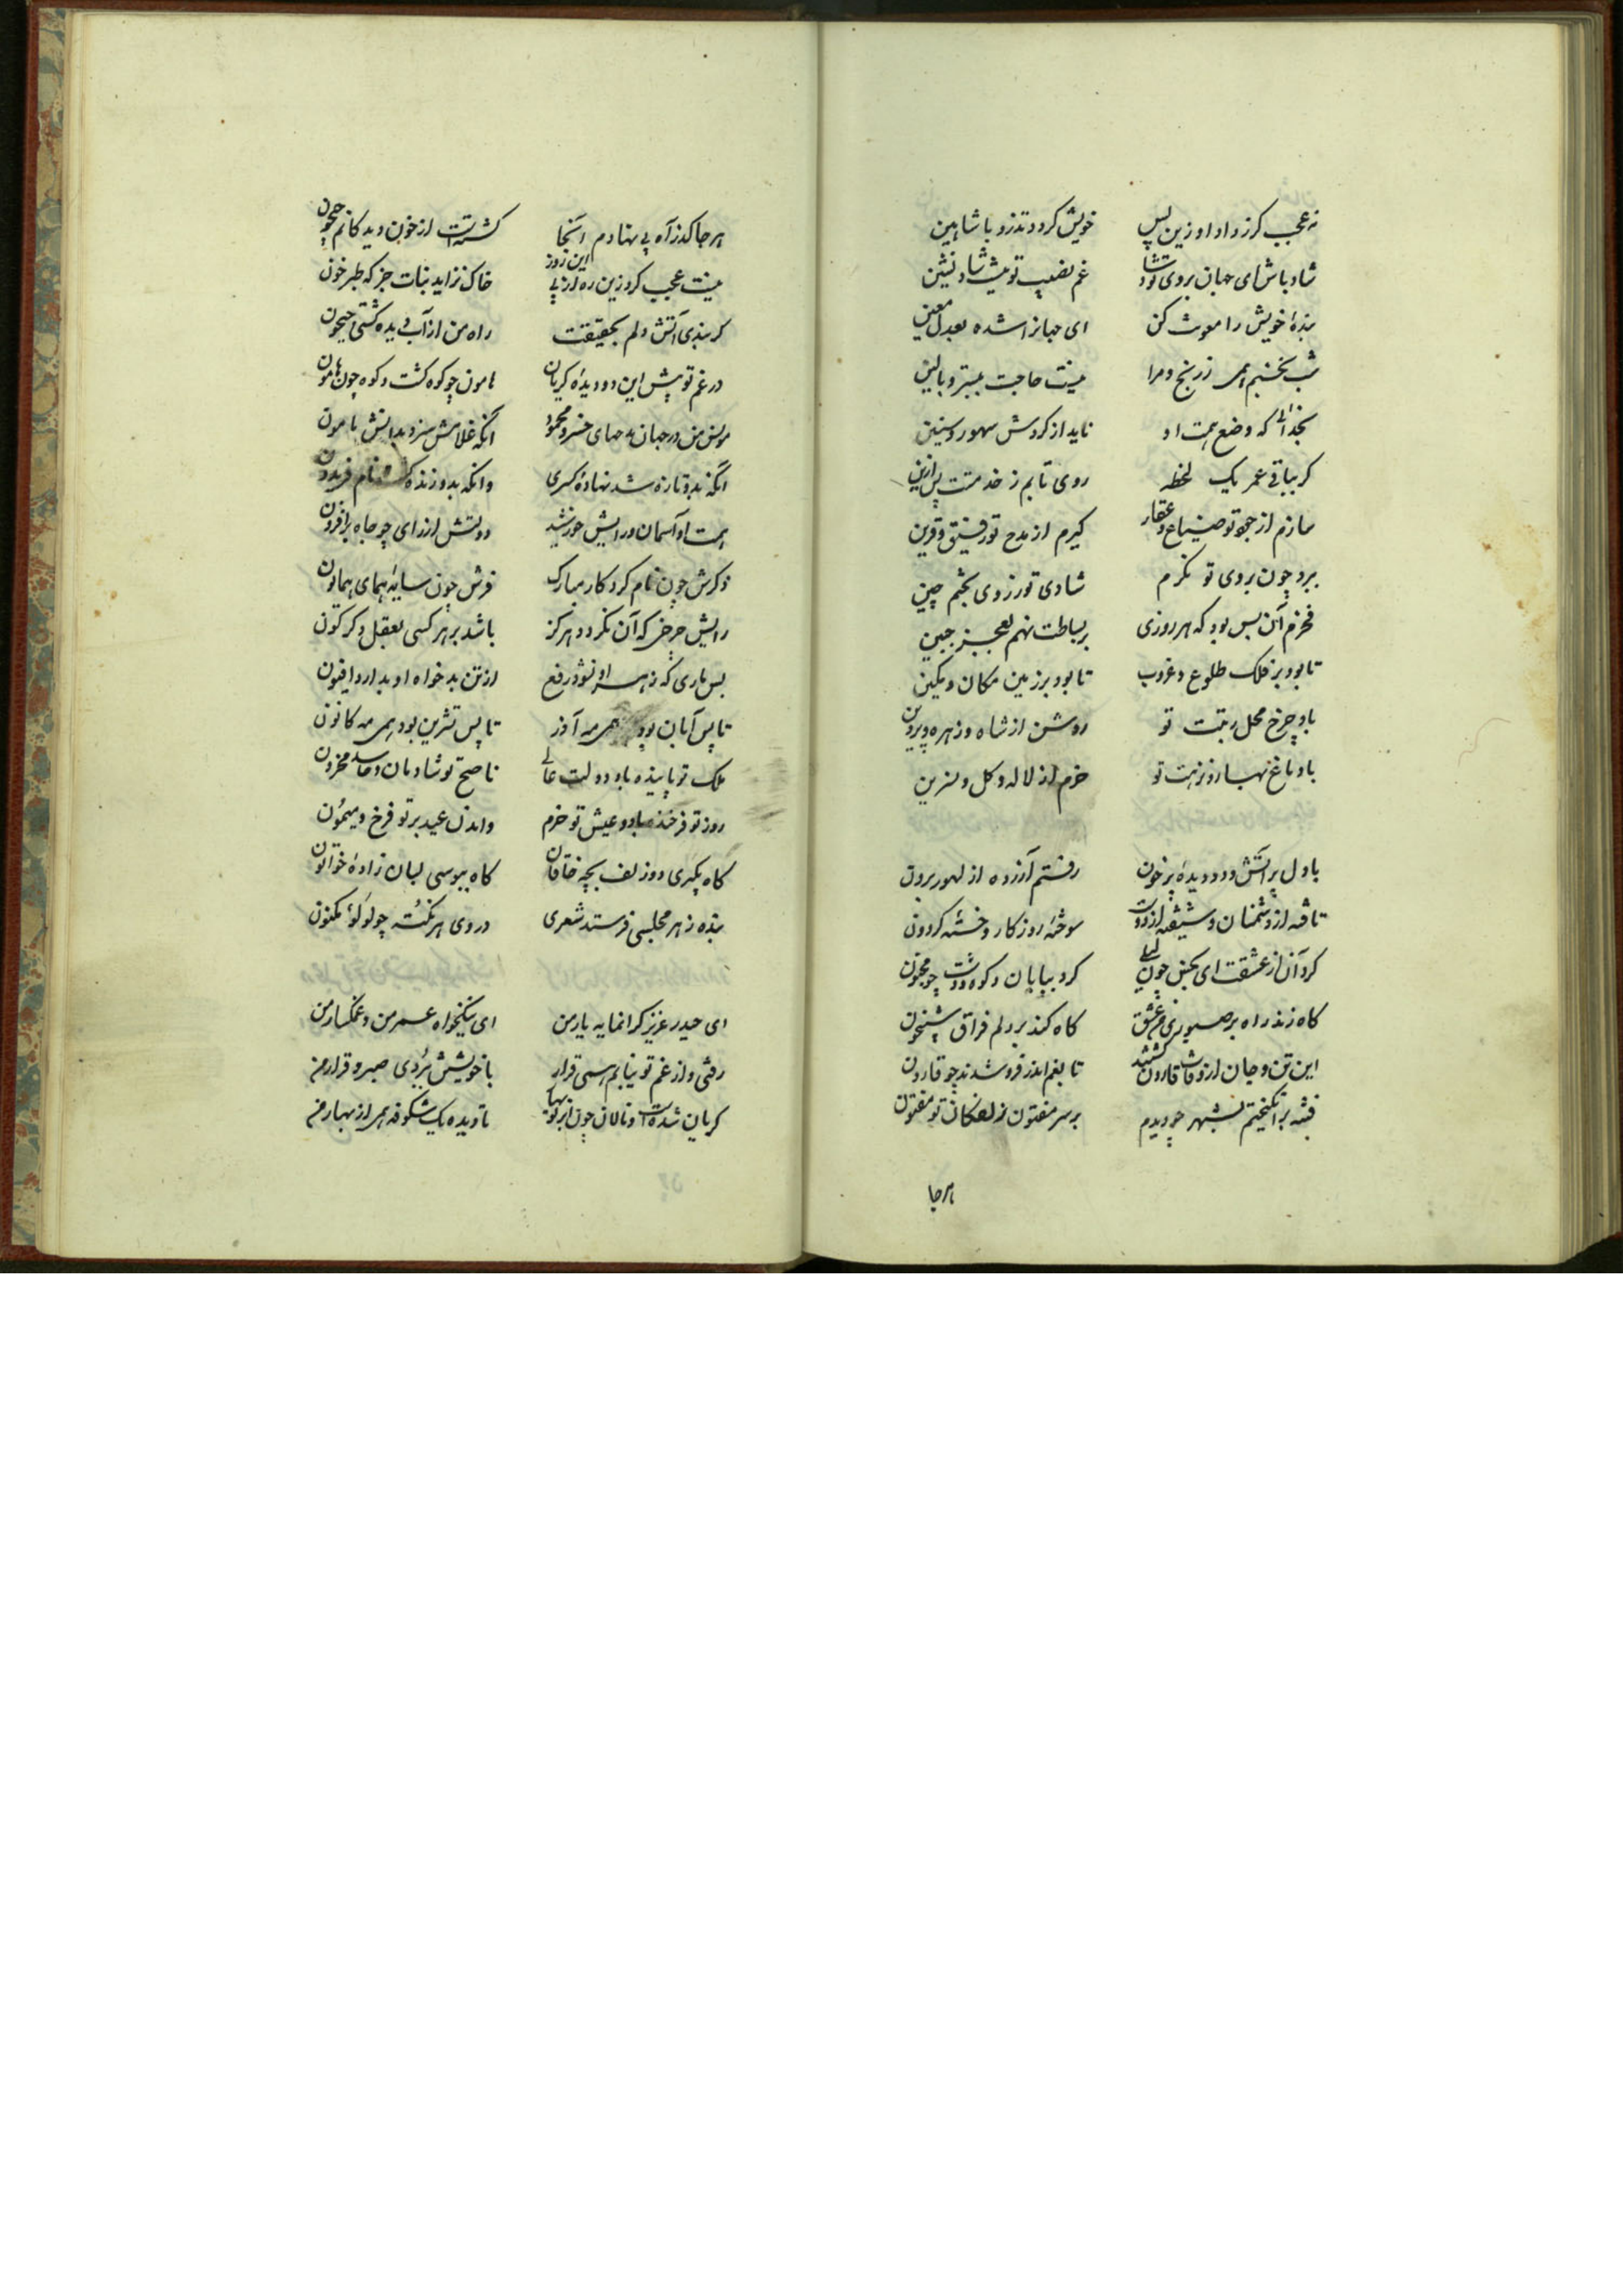 نه عجب کر ز داد او زین پس خویش کردد تذرو با شاهین
شاد باش ای جهان بروی تو شاد غم نصیب تو نیست شاد نشین
بندهٔ خویش را معونت کن ای جهانرا شده بعدل معین
شب نخسبم همی ز رنج و مرا نیست حاجت ببستر و بالین
بخدائی که وضع همت او ناید از کردش سهور و سنین
کر بباقی عمر یک لحظه روی تابم ز خدمتت پس ازین
سازم از جود تو ضیاع و عقار کیرم از مدح تو رفیق و قرین
برد چون بروی تو نکرم شادی تو ز روی بختم چین
فخرم آن بس بود که هر روزی بر بساطت نهم بعجز جبین
تا بود بر فلک طلوع و غروب تا بود بر زمین مکان و مکین
باد چرخ محل رتبت تو روشن از شاه و زهره و پروین
باد باغ بهار نزهت تو خرم از لاله و کل و نسرین
با دل پر آتش و دو دیدهٔ پر خون رفتم آزرده از لهور برون
تافته از دشمنان و شیفته از دوست سوختهٔ روزکار و خستهٔ کردون
کرد آن از عشقت ای بحسن چون لیلی کرد بیابان و کوه و دشت چو مجنون
کاه زند راه بر صبوریم عشق کاه کند بر دلم فراق شبیخون
این تن و جان از وفات قارون کشتند تا بغم اندر فرو شدند چو قارون
فتنه برانکیختم بشهر چو دیدم بر سر مفتون زلفکان تو مفتون
هرجا
هر جا کذر آه پی نهادم آنجا کشته است از خون دیدکانم جیحون
نیست عجب کر زین ره از پی این روز خاک نزاید نبات جز که طبرخون
کر بندی آتش دلم بحقیقت راه من از آب دیده کشتی جیحون
در غم تو پیش این دو دیدهٔ کریان هامون چو کوه کشت و کوه چون هامون
مونس من در جهان مدحهای خسرو محمود آنکه غلامش سزد بدانش مامون
آنکه بدو تازه شد نهادهٔ کسری وآنکه بدو زنده کشت نام فریدون
همت او آسمان و رایش خورشید دولتش از رای چو جاه برافزون
ذکرش چون نام کردکار مبارک فرش چون سایهٔ همای همایون
رایش چرخی که آن نکردد هرکز باشد بر هر کسی بعقل دکرکون
بس ماری که زهر او نشود رفع از تن بدخواه او بدارد افیون
تا پس آبان بود همی مه آذر تا پس تشرین بود همی مه کانون
ملک تو پاینده باد و دولت عالی ناصح تو شادمان و حاسد محزون
روز تو فرخنده باد و عیش تو خرم وآمدن عید بر تو فرخ و میمون
کاه بکیری دو زلف بچهٔ خاقان کاه ببوسی لبان زادهٔ خواتون
بنده ز هر مجلسی فرستد شعری در وی هر نکته چو لؤلؤ مکنون
ای حیدر عزیز کرانمایه یار من ای نیکخواه عمر من و غمکسار من
رفتی و از غم تو نیابم همی قرار با خویشتن ببردی صبر و قرار من
کریان شدست و نالان چون ابر نوبهار نادیده یک شکوفه همی از بهار من